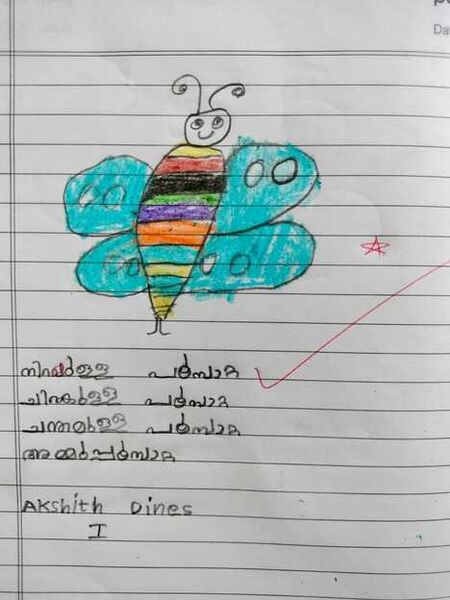 Da
നിറമുള്ള പൂമ്പാറ്റ
ചിറകുള്ള പൂമ്പാറ്റ
ചന്തമുള്ള പൂമ്പാറ്റ
Akshith Dines
I